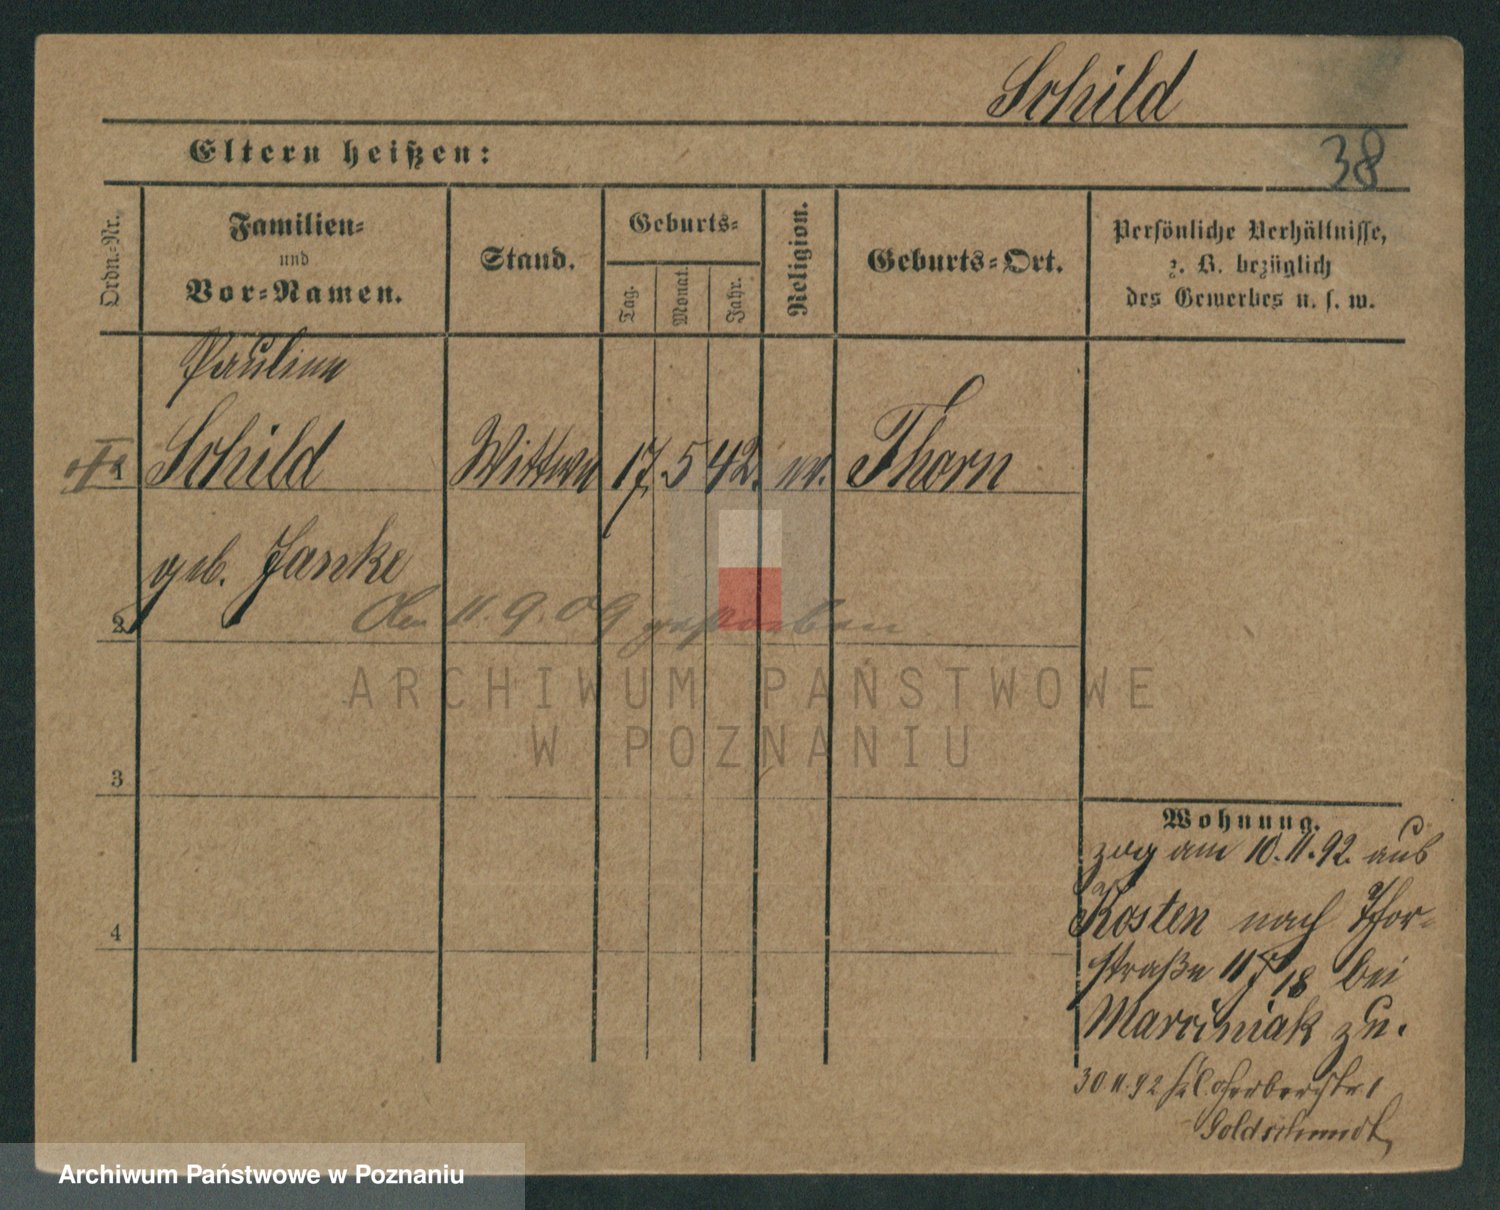 Schild
38
Eltern heißen:
Ordn.-Nr.
Familien-
und
Vor-Namen.
Stand.
Geburts-
Tag.
Monat.
Jahr.
Religion.
Geburts-Ort.
Persönliche Verhältnisse,
z. B. bezüglich
des Gewerbes u. s. w.
Pauline
1 Schild Wittwe 17. 5 42. ev. Thorn
geb. Janke
2 Den 11. 9. 09 gestorben
3
4
Wohnung.
zog am 10. 11. 92. aus
Kosten nach Thor-
straße 18 bei
Marciniak zu.
30 11. 92
Goldschmidt
ARCHIWUM PAŃSTWOWE
W POZNANIU
Archiwum Państwowe w Poznaniu